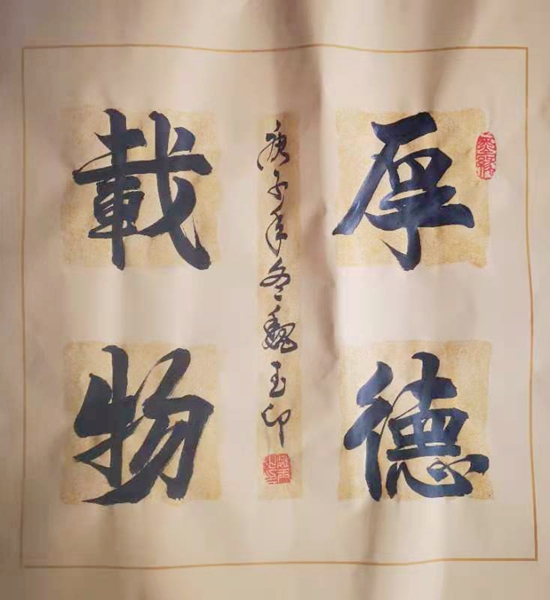 厚德
載物
庚子年冬魏玉印